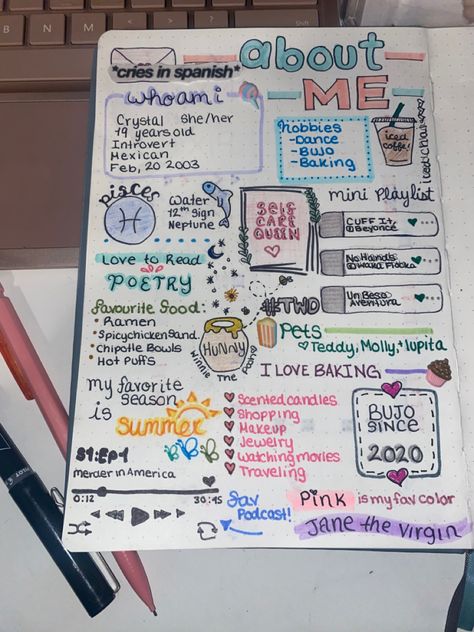 *cries in spanish*
about
ME
whoami
Crystal She/her
19 years old
Introvert
Mexican
Feb, 20 2003
hobbies
-Dance
-BUJO
-Baking
iced
coffee!
Pisces
Water
12th Sign
Neptune
SELF
CARE
QUEEN
mini playlist
CUFF It
@Beyonce
No Hands
@Waka Flocka
Un Beso
Aventura
Love to Read
POETRY
#TWD
Favourite food:
Ramen
Spicy chicken Sand.
Chipotle Bowls
Hot Puffs
HUNNY
Winnie The Pooh
Pets
Teddy, Molly, + lupita
I LOVE BAKING
my favorite
season
is
summer
Scented candles
Shopping
Makeup
Jewelry
Watching movies
Traveling
BUJO
SINCE
2020
S1:EP.1
Merder in America
0:12
30:45
fav
Podcast!
Pink is my fav color
Jane the Virgin
PILOT